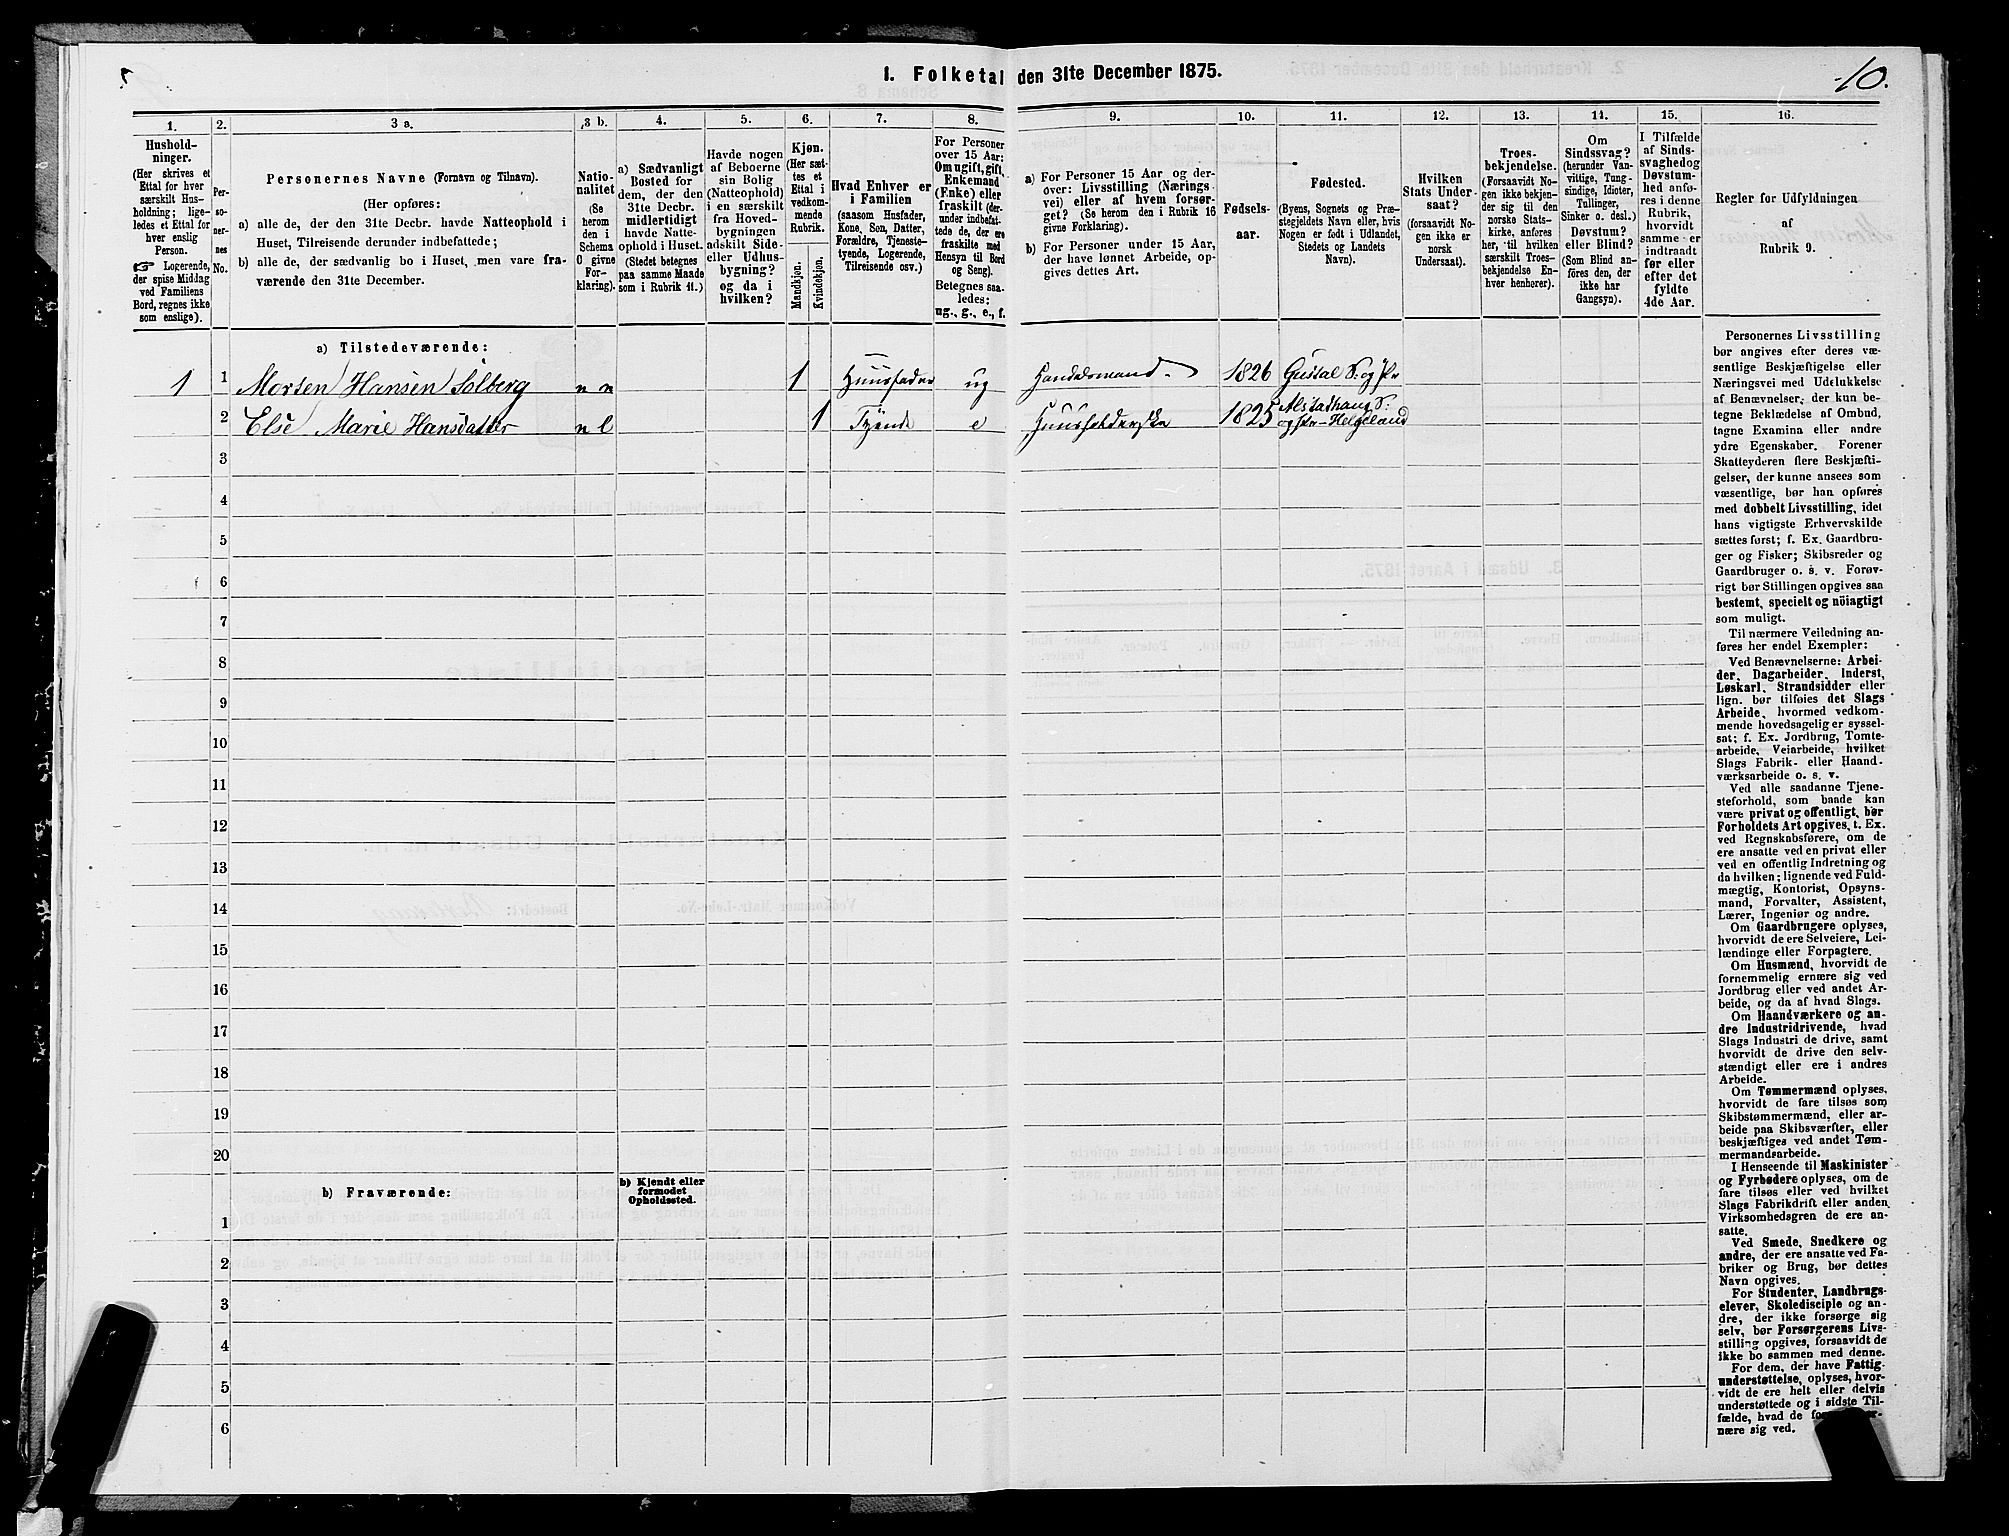 1. Folketal den 31te December 1875.
10.
1.
2.
3 a.
3 b.
4.
5.
6.
7.
8.
9.
10.
11.
12.
13.
14.
15.
16.
Hushold-
ninger.
(Her skrives et
Ettal for hver
særskilt Hus-
holdning; lige-
ledes et Ettal for
hver enslig
Person.
☞ Logerende,
der spise Middag
ved Familiens
Bord, regnes ikke
som enslige).
Per-
so-
ner-
nes
No.
Personernes Navne (Fornavn og Tilnavn).
(Her opføres:
a) alle de, der den 31te Decbr. havde Natteophold i
Huset, Tilreisende derunder indbefattede;
b) alle de, der sædvanlig bo i Huset, men vare fra-
værende den 31te December.
Natio-
nalitet
(Se
herom
den i
Schema
0 givne
For-
klaring).
a) Sædvanligt
Bosted for
dem, der den
31te Decbr.
midlertidigt
havde Natte-
ophold i Huset.
(Stedet betegnes
paa samme Maade
som i Rubrik 11.)
Havde nogen
af Beboerne
sin Bolig
(Natteophold)
i en særskilt
fra Hoved-
bygningen
adskilt Side-
eller Udhus-
bygning?
og da i
hvilken?
Kjøn.
(Her sæt-
tes et
Ettal i
vedkom-
mende
Rubrik.
Mandkjøn.
Kvindekjøn.
Hvad Enhver er
i Familien
(saasom Husfader,
Kone, Søn, Datter,
Forældre, Tjeneste-
tyende, Logerende,
Tilreisende osv.)
For Personer
over 15 Aar:
Om ugift, gift,
Enkemand
(Enke) eller
fraskilt (der-
under indbefat-
tede de, der ere
fraskilte med
Hensyn til Bord
og Seng).
Betegnes saa-
ledes:
ug., g., e., f.
a) For Personer 15 Aar og der-
over: Livsstilling (Nærings-
vei) eller af hvem forsør-
get? (Se herom den i Rubrik 16
givne Forklaring).
b) For Personer under 15 Aar,
der have lønnet Arbeide, op-
gives dettes Art.
Fødsels-
aar.
Fødested.
(Byens, Sognets og Præ-
stegjeldets Navn eller, hvis
Nogen er født i Udlandet,
Stedets og Landets
Navn).
Hvilken
Stats Under-
saat?
(forsaavidt No-
gen ikke er
norsk
Undersaat).
Troes-
bekjendelse.
(Forsaavidt No-
gen ikke bekjen-
der sig til den
norske Stats-
kirke, anføres
her, til hvilken
særskilt Troes-
bekjendelse En-
hver henhører).
Om
Sindssvag?
(herunder Van-
vittige, Tung-
sindige, Idioter,
Tullinger,
Sinker o. desl.)
Døvstum?
eller Blind?
(Som Blind an-
føres den, der
ikke har
Gangsyn).
I Tilfælde
af Sinds-
svaghedog
Døvstum-
hed anfø-
res i denne
Rubrik,
hvorvidt
samme er
indtraadt
før eller
efter det
fyldte
4de Aar.
Regler for Udfyldningen
af
Rubrik 9.
a) Tilstedeværende:
1 1 Morten Hansen Solberg n n 1 Huusfader ug Handelsmand 1826 S: og
2 Else Marie Hansdatter n l 1 Tyende e Huusholderske 1825 Alstadhaug S:
og Helgeland
3
4
5
6
7
8
9
10
11
12
13
14
15
16
17
18
19
20
b) Fraværende:
b) Kjendt eller
formodet
Opholdssted.
1
2
3
4
5
6
Personernes Livsstilling
bør angives efter deres væ-
sentlige Beskjæftigelse eller
Næringsvei med Udelukkelse
af Benævnelser, der kun be-
tegne Beklædelse af Ombud,
tagne Examina eller andre
ydre Egenskaber. Forener
Skatteyderen flere Beskjæfti-
gelser, der kunne ansees som
væsentlige, bør han opføres
med dobbelt Livsstilling, idet
hans vigtigste Erhvervskilde
sættes først; f. Ex. Gaardbru-
ger og Fisker; Skibsreder og
Gaardbruger o. s. v. Forøv-
rigt bør Stillingen opgives saa
bestemt, specielt og nöiagtigt
som muligt.
Til nærmere Veiledning an-
føres her endel Exempler:
Ved Benævnelserne: Arbei-
der, Dagarbeider, Inderst,
Løskarl, Strandsidder eller
lign. bør tilføies det Slags
Arbeide, hvormed vedkom-
mende hovedsagelig er syssel-
sat; f. Ex. Jordbrug, Tomte-
arbeide, Veiarbeide, hvilket
Slags Fabrik- eller Haand-
værksarbeide o. s. v.
Ved alle saadanne Tjene-
steforhold, som baade kan
være privat og offentligt, bør
Forholdets Art opgives, t. Ex.
ved Regnskabsførere, om de
ere ansatte ved en privat eller
ved en offentlig Indretning og
da hvilken; lignende ved Fuld-
mægtig, Kontorist, Opsyns-
mand, Forvalter, Assistent,
Lærer, Ingeniør og andre.
Om Gaardbrugere oplyses,
hvorvidt de ere Selveiere, Lei-
lændinge eller Forpagtere.
Om Husmænd, hvorvidt de
fornemmelig ernære sig ved
Jordbrug eller ved andet Ar-
beide, og da af hvad Slags.
Om Haandværkere og an-
dre Industridrivende, hvad
Slags Industri de drive, samt
hvorvidt de drive den selv-
stændigt eller ere i andres
Arbeide.
Om Tømmermænd oplyses,
hvorvidt de fare tilsøs som
Skibstømmermænd, eller ar-
beide paa Skibsværfter, eller
beskjæftiges ved andet Tøm-
mermandsarbeide.
I Henseende til Maskinister
og Fyrbødere oplyses, om de
fare tilsøs eller ved hvilket
Slags Fabrikdrift eller anden
Virksomhedsgren de ere an-
satte.
Ved Smede, Snedkere og
andre, der ere ansatte ved Fa-
briker og Brug, bør dettes
Navn opgives.
For Studenter, Landbrugs-
elever, Skoledisciple og an-
dre, der ikke forsørge sig
selv, bør Forsørgerens Livs-
stilling opgives, forsaavidt de
ikke bo sammen med denne.
For dem, der have Fattig-
understøttelse, oplyses, hvor-
vidt de ere helt eller delvis
understøttede og i sidste Til-
fælde, hvad de
nære sig ved.